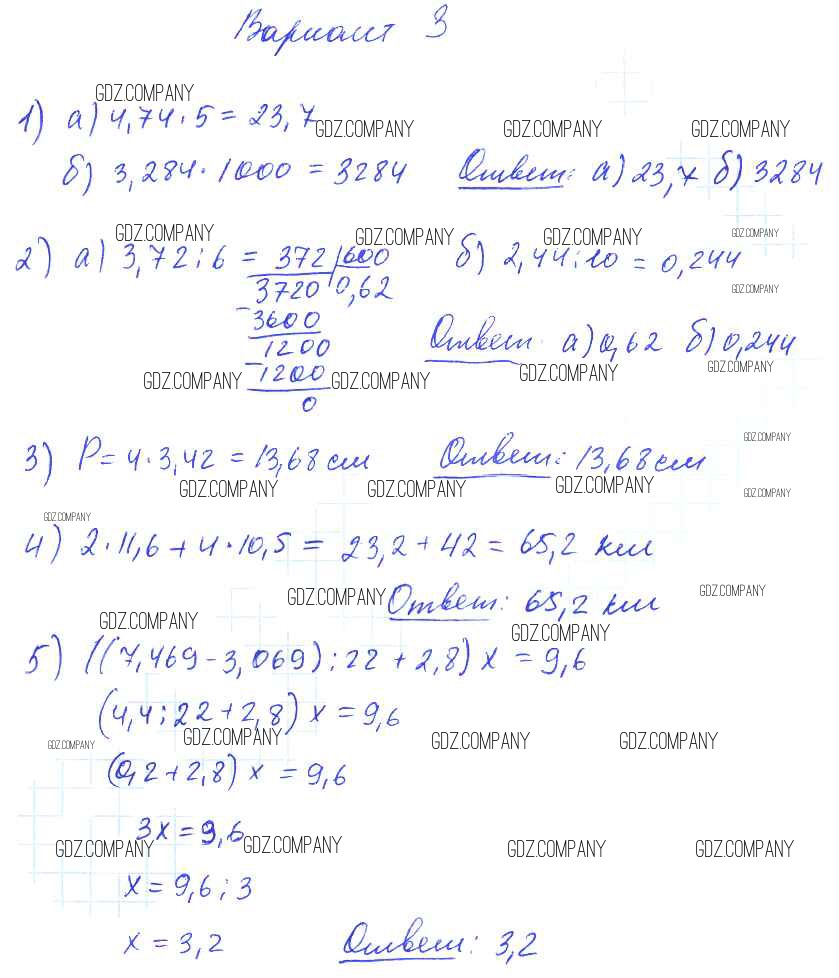 Вариант 3
GDZ.COMPANY
1) а) 4,74 · 5 = 23,7
GDZ.COMPANY GDZ.COMPANY GDZ.COMPANY
б) 3,284 · 1000 = 3284 Ответ: а) 23,7 б) 3284
GDZ.COMPANY GDZ.COMPANY GDZ.COMPANY GDZ.COMPANY
2) а) 3,72 : 6 = 372 | 600 б) 2,44 : 10 = 0,244
3720 | 0,62 GDZ.COMPANY
- 3600
1200 Ответ а) 0,62 б) 0,244
- 1200
GDZ.COMPANY GDZ.COMPANY GDZ.COMPANY GDZ.COMPANY
0
GDZ.COMPANY
3) P = 4 · 3,42 = 13,68 см Ответ: 13,68 см
GDZ.COMPANY GDZ.COMPANY GDZ.COMPANY GDZ.COMPANY
GDZ.COMPANY
4) 2 · 11,6 + 4 · 10,5 = 23,2 + 42 = 65,2 км
GDZ.COMPANY Ответ: 65,2 км GDZ.COMPANY
GDZ.COMPANY GDZ.COMPANY
5) ((7,469 - 3,069) : 22 + 2,8) x = 9,6
(4,4 : 22 + 2,8) x = 9,6
GDZ.COMPANY GDZ.COMPANY GDZ.COMPANY GDZ.COMPANY
(0,2 + 2,8) x = 9,6
3x = 9,6
GDZ.COMPANY GDZ.COMPANY GDZ.COMPANY GDZ.COMPANY
x = 9,6 : 3
x = 3,2 Ответ: 3,2